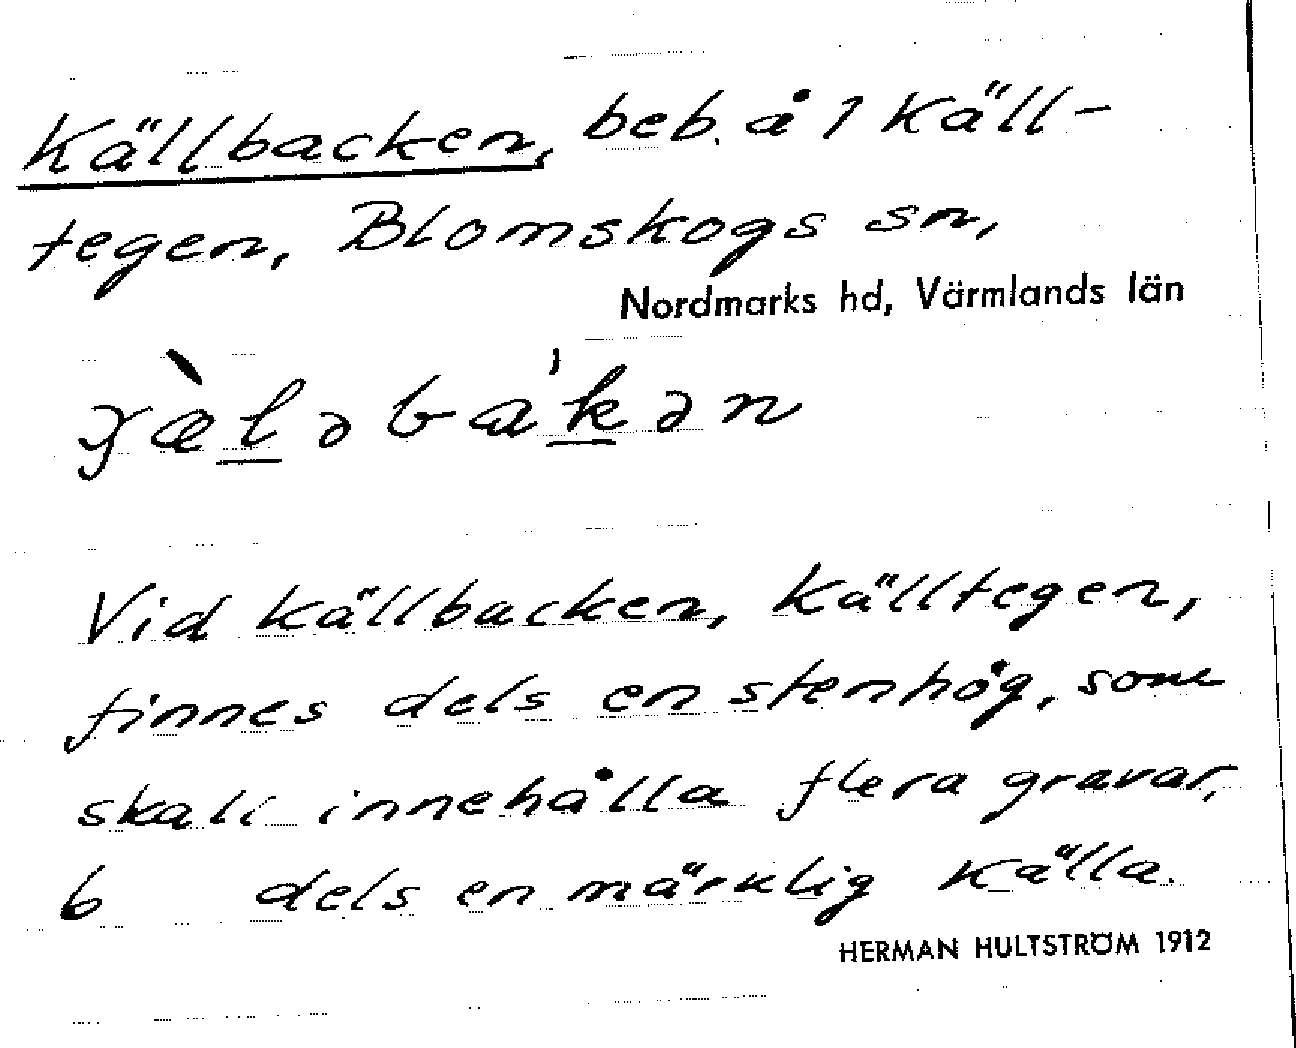 Källbacken, beb. å 1 Käll-
tegen, Blomskogs sn,
Nordmarks hd, Värmlands län
Vid Källbacken, Källtegen,
finnes dels en stenhög, som
skall innehålla flera gravar,
6 dels en märklig källa.
HERMAN HULTSTRÖM 1912